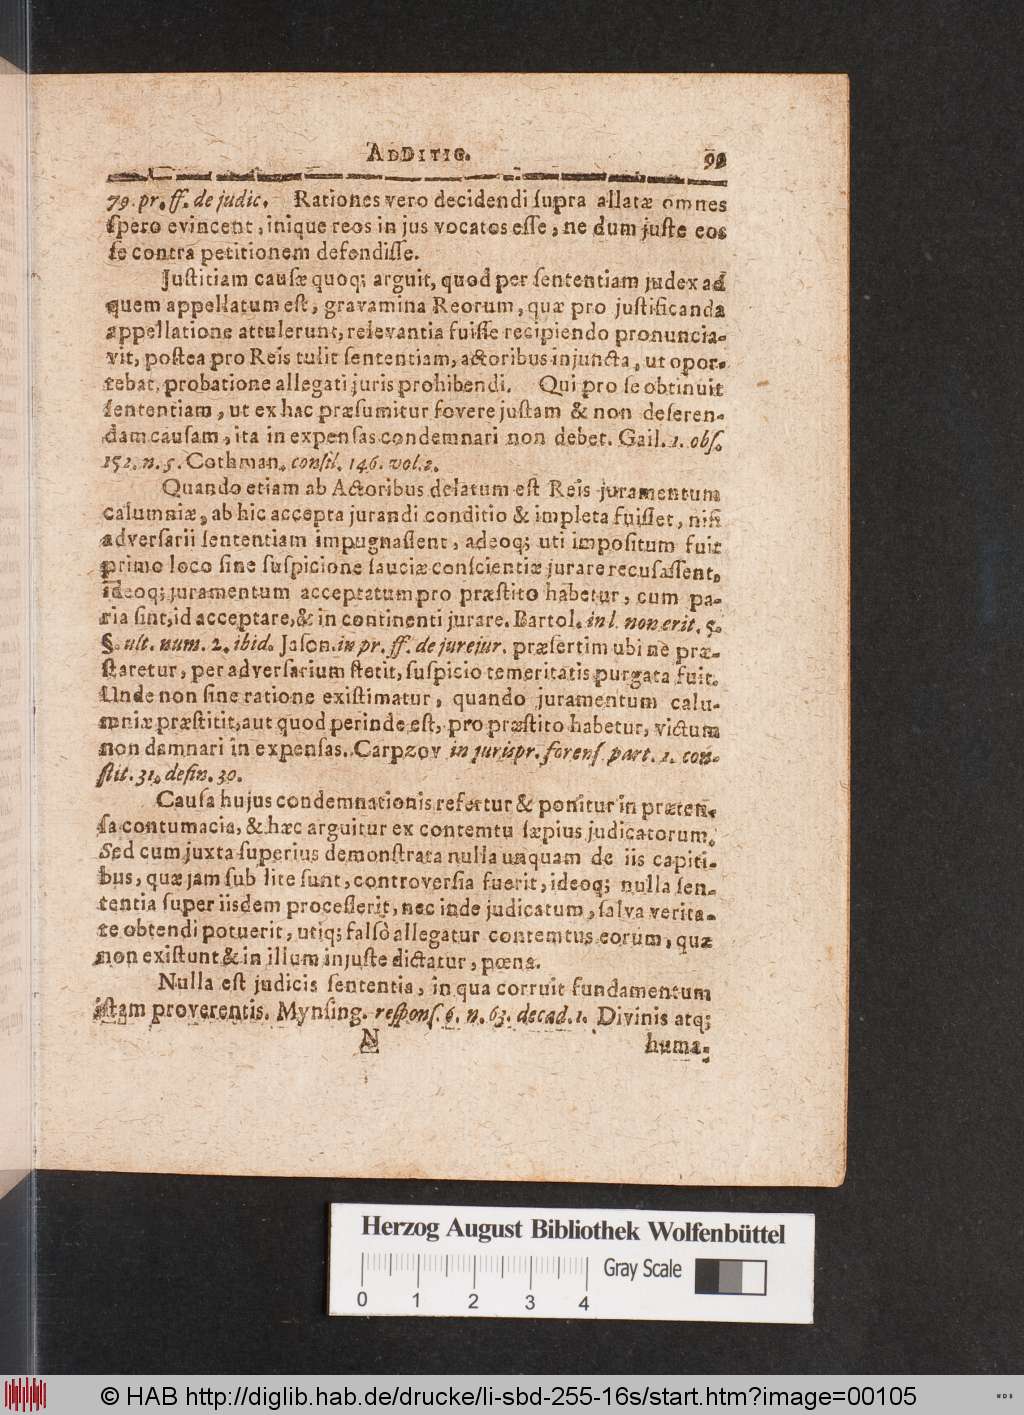 ADDITIO.
79. pr. ff. de judic. Rationes vero decidendi ſupra allatæ omnes
ſpero evincent, inique reos in jus vocatos eſſe, ne dum juſte eos
ſe contra petitionem defendiſſe.
Juſtitiam cauſæ quoq; arguit, quod per ſententiam judex ad
quem appellatum eſt, gravamina Reorum, quæ pro juſtificanda
appellatione attulerunt, relevantia fuiſſe recipiendo pronuncia-
vit, poſtea pro Reis tulit ſententiam, actoribus injuncta, ut opor-
tebat, probatione allegati juris prohibendi. Qui pro ſe obtinuit
ſententiam, ut ex hac præſumitur fovere juſtam & non deſeren-
dam cauſam, ita in expenſas condemnari non debet. Gail. 1. obſ.
152. n. 5. Cothman. conſil. 146. vol. 2.
Quando etiam ab Actoribus delatum eſt Reis juramentum
calumniæ, ab hic accepta jurandi conditio & impleta fuiſſet, niſi
adverſarii ſententiam impugnaſſent, adeoq; uti impoſitum fuit
primo loco ſine ſuſpicione ſauciæ conſcientiæ jurare recuſaſſent,
ideoq; juramentum acceptatum pro præſtito habetur, cum pa-
ria ſint, id acceptare, & in continenti jurare. Bartol. in l. non erit. 5.
§. ult. num. 2. ibid. Jaſon. in pr. ff. de jurejur. præſertim ubi ne præ-
ſtaretur, per adverſarium ſtetit, ſuſpicio temeritatis purgata fuit.
Unde non ſine ratione exiſtimatur, quando juramentum calu-
mniæ præſtitit, aut quod perinde eſt, pro præſtito habetur, victum
non damnari in expenſas. Carpzov in jurispr. forenſ. part. 1. con-
ſtit. 31. defin. 30.
Cauſa hujus condemnationis refertur & ponitur in præten-
ſa contumacia, & hæc arguitur ex contemtu ſæpius judicatorum.
Sed cum juxta ſuperius demonſtrata nulla unquam de iis capiti-
bus, quæ jam ſub lite ſunt, controverſia fuerit, ideoq; nulla ſen-
tentia ſuper iisdem proceſſerit, nec inde judicatum, ſalva verita-
te obtendi potuerit, utiq; falsò allegatur contemtus eorum, quæ
non exiſtunt & in illum injuſte dictatur, pœna.
Nulla eſt judicis ſententia, in qua corruit fundamentum
iſtam proverentis. Mynſing. reſponſ. 6. n. 63. decad. 1. Divinis atq;
N huma-
Herzog August Bibliothek Wolfenbüttel
Gray Scale
0 1 2 3 4
© HAB http://diglib.hab.de/drucke/li-sbd-255-16s/start.htm?image=00105